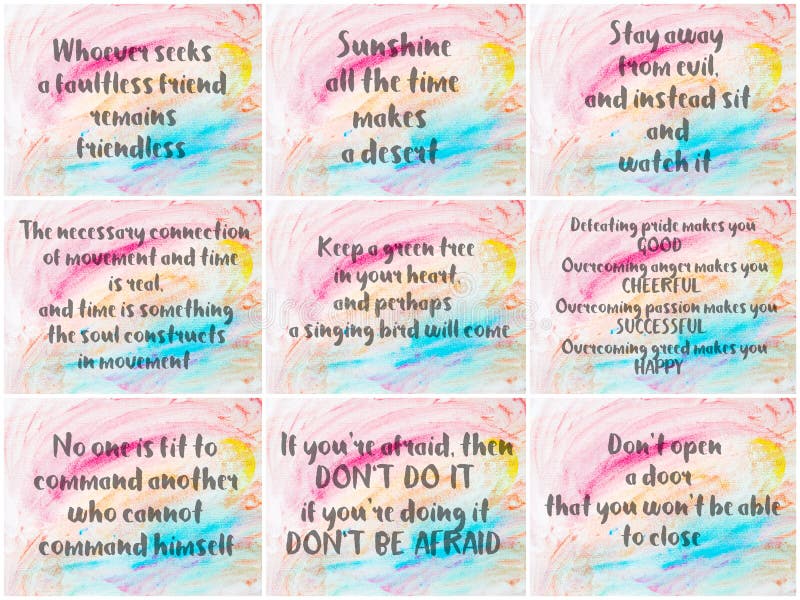 Whoever seeks
a faultless friend
remains
friendless
Sunshine
all the time
makes
a desert
Stay away
from evil,
and instead sit
and
watch it
The necessary connection
of movement and time
is real,
and time is something
the soul constructs
in movement
Keep a green tree
in your heart,
and perhaps
a singing bird will come
Defeating pride makes you
GOOD
Overcoming anger makes you
CHEERFUL
Overcoming passion makes you
SUCCESSFUL
Overcoming greed makes you
HAPPY
No one is fit to
command another
who cannot
command himself
If you're afraid, then
DON'T DO IT
if you're doing it
DON'T BE AFRAID
Don't open
a door
that you won't be able
to close